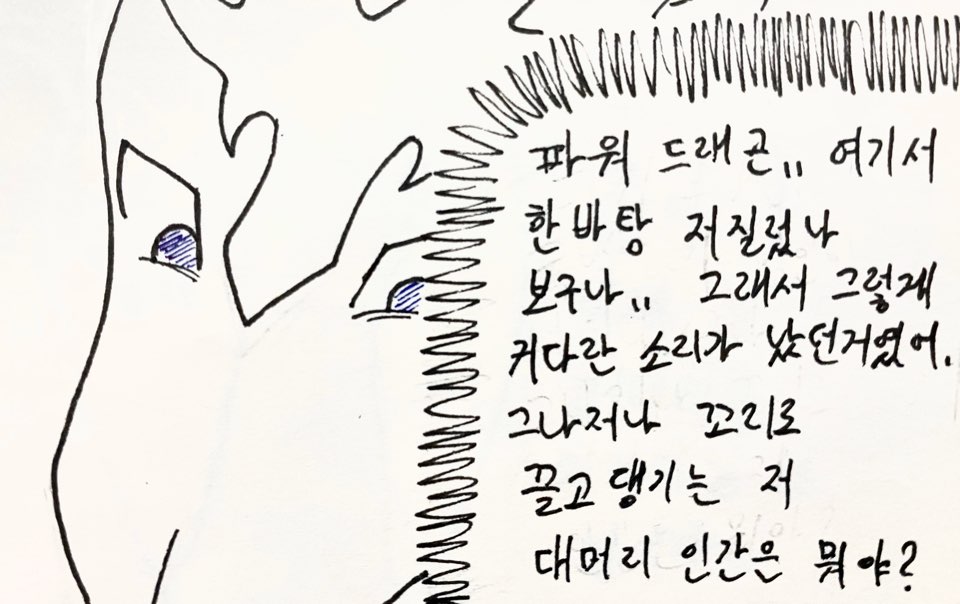 파워 드래곤,, 여기서
한바탕 저질렀나
보구나,, 그래서 그렇게
커다란 소리가 났던거였어.
그나저나 꼬리로
끌고댕기는 저
대머리 인간은 뭐야?